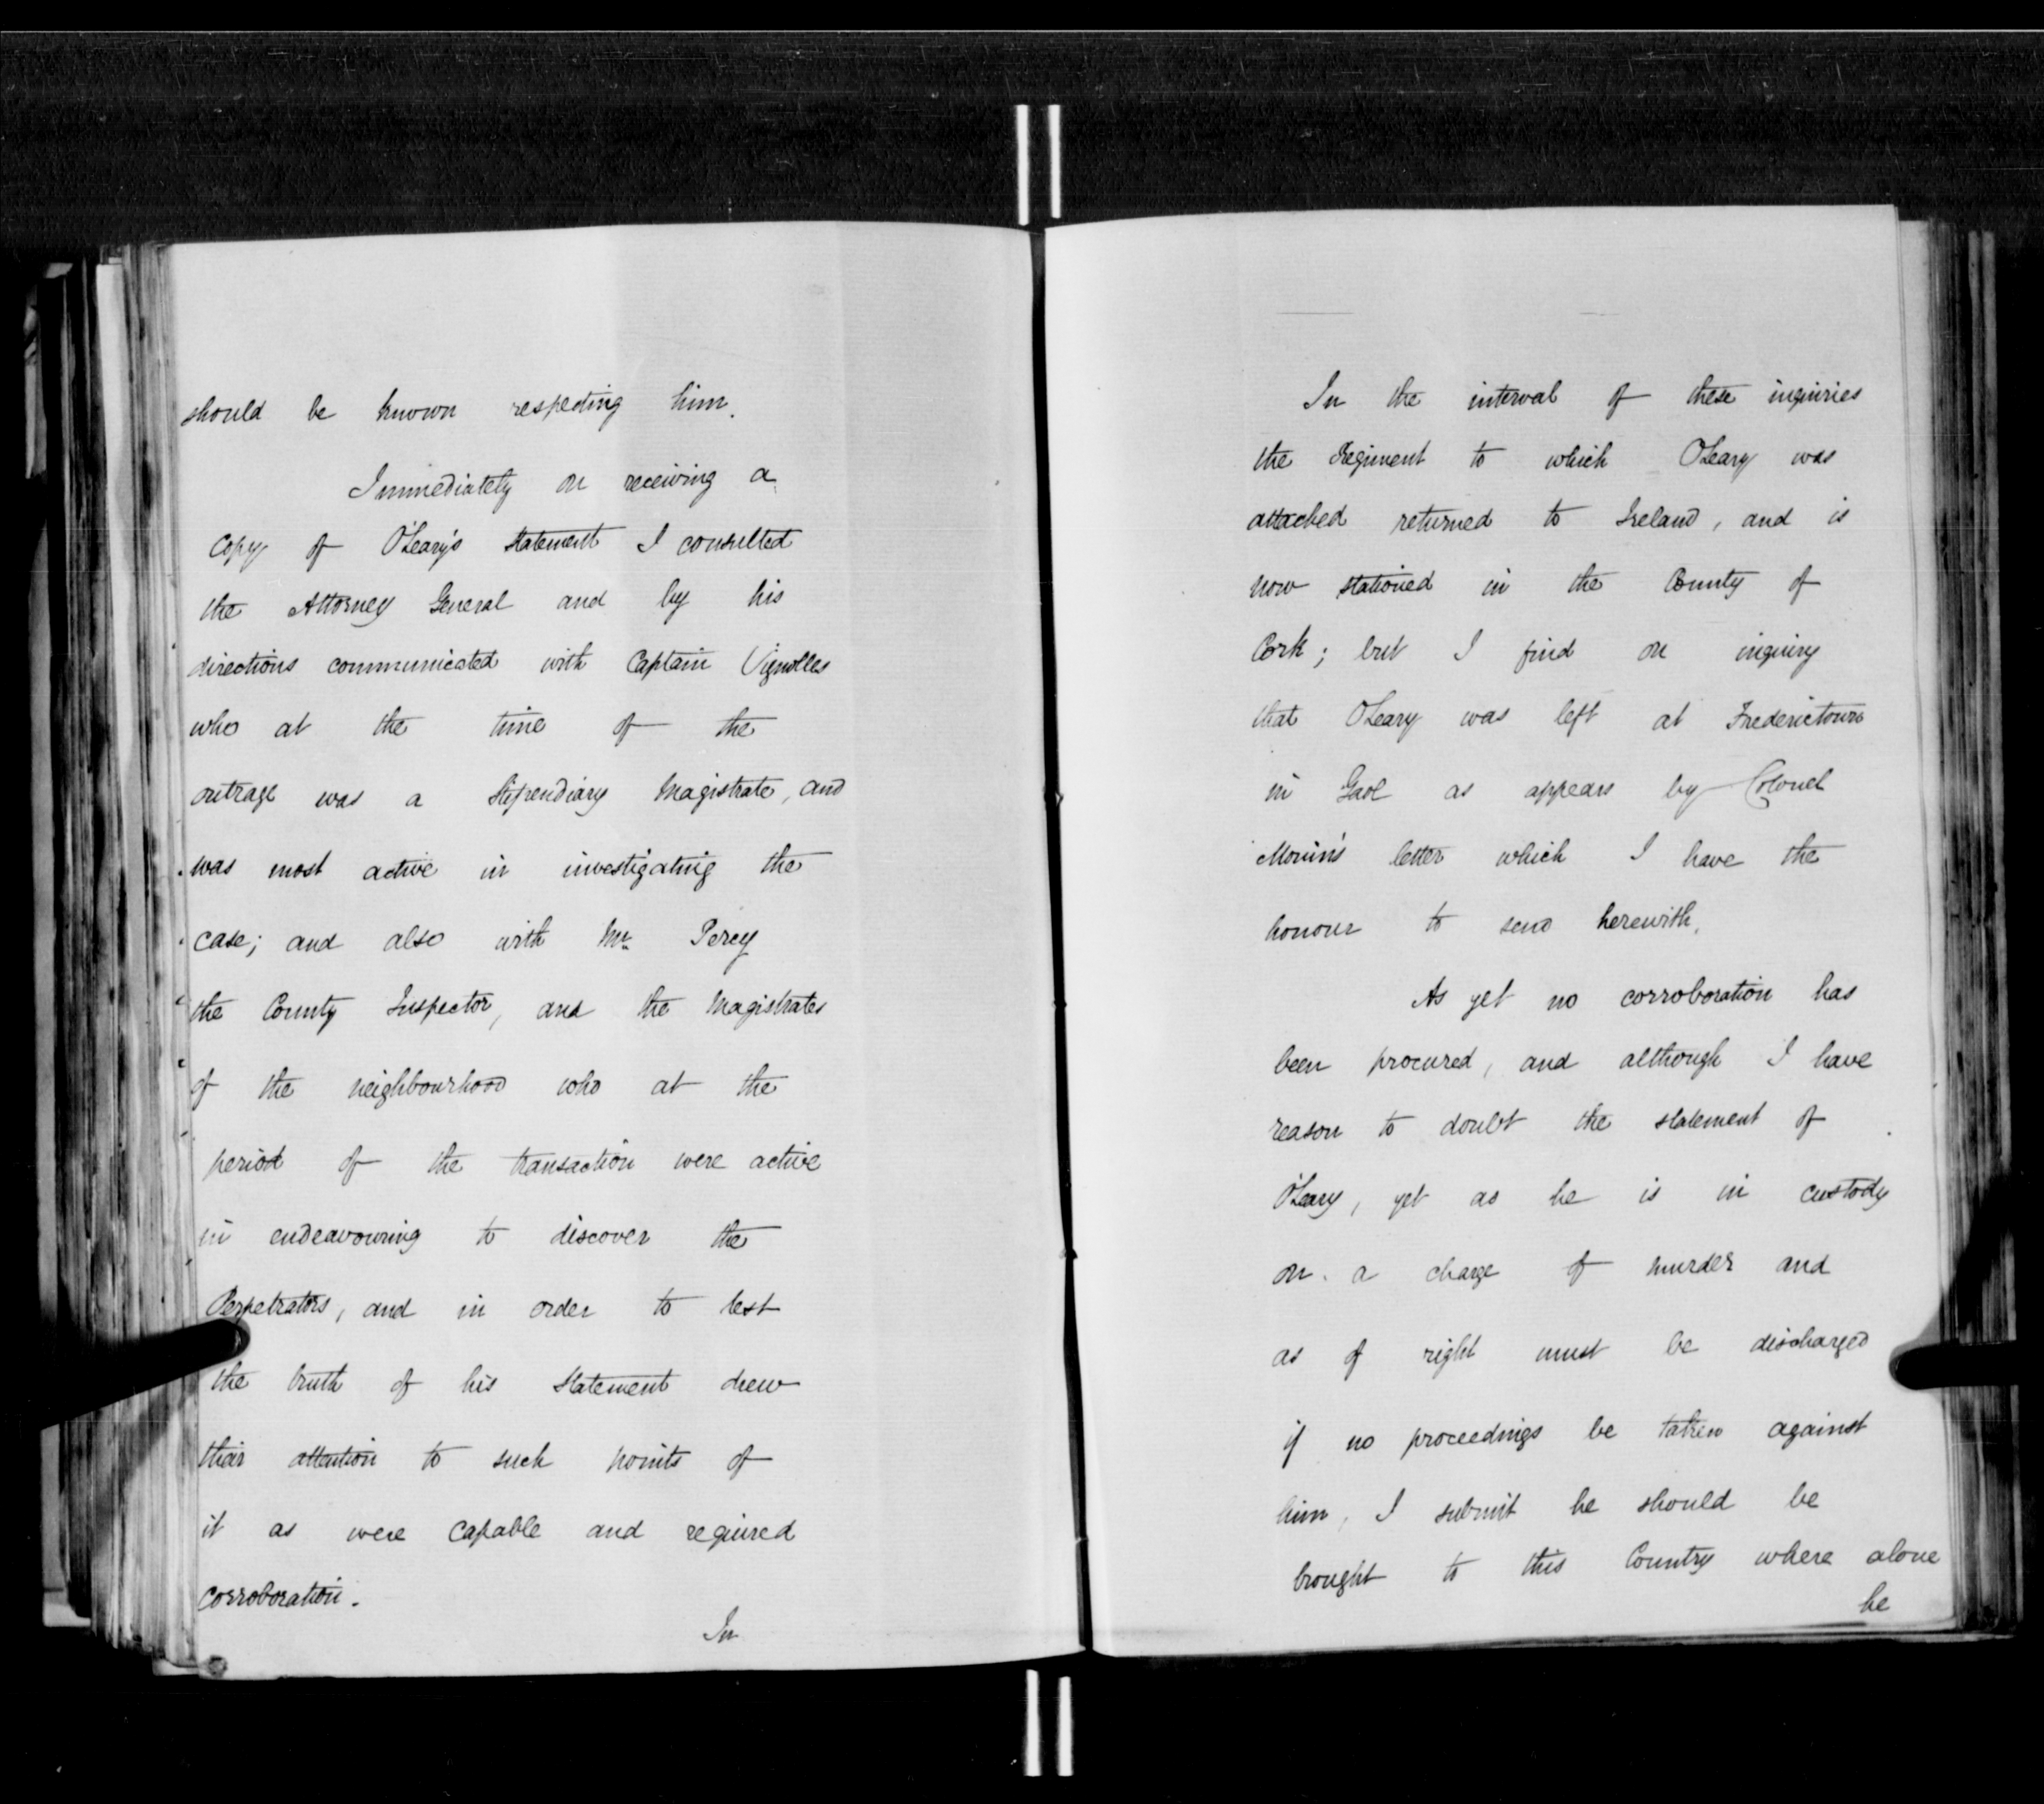 should be known respecting him.
Immediately on receiving a
Copy of O'Leary's statement I consulted
the Attorney General and by his
directions communicated with Captain Vignolles
who at the time of the
outrage was a Stipendiary Magistrate, and
was most active in investigating the
case; and also with Mr. Percy
the County Inspector, and the Magistrates
of the neighbourhood who at the
period of the transaction were active
in endeavouring to discover the
Perpetrators, and in order to test
the truth of his statement drew
their attention to such points of
it as were capable and required
corroboration.
In
In the interval of these inquiries
the Regiment to which O'Leary was
attached returned to Ireland, and is
now stationed in the County of
Cork; but I find on inquiry
that O'Leary was left at Fredericktown
in Gaol as appears by Colonel
letter which I have the
honour to send herewith.
As yet no corroboration has
been procured, and although I have
reason to doubt the statement of
O'Leary, yet as he is in custody
on a charge of murder and
as of right must be discharged
if no proceedings be taken against
him, I submit he should be
brought to this Country where alone
he